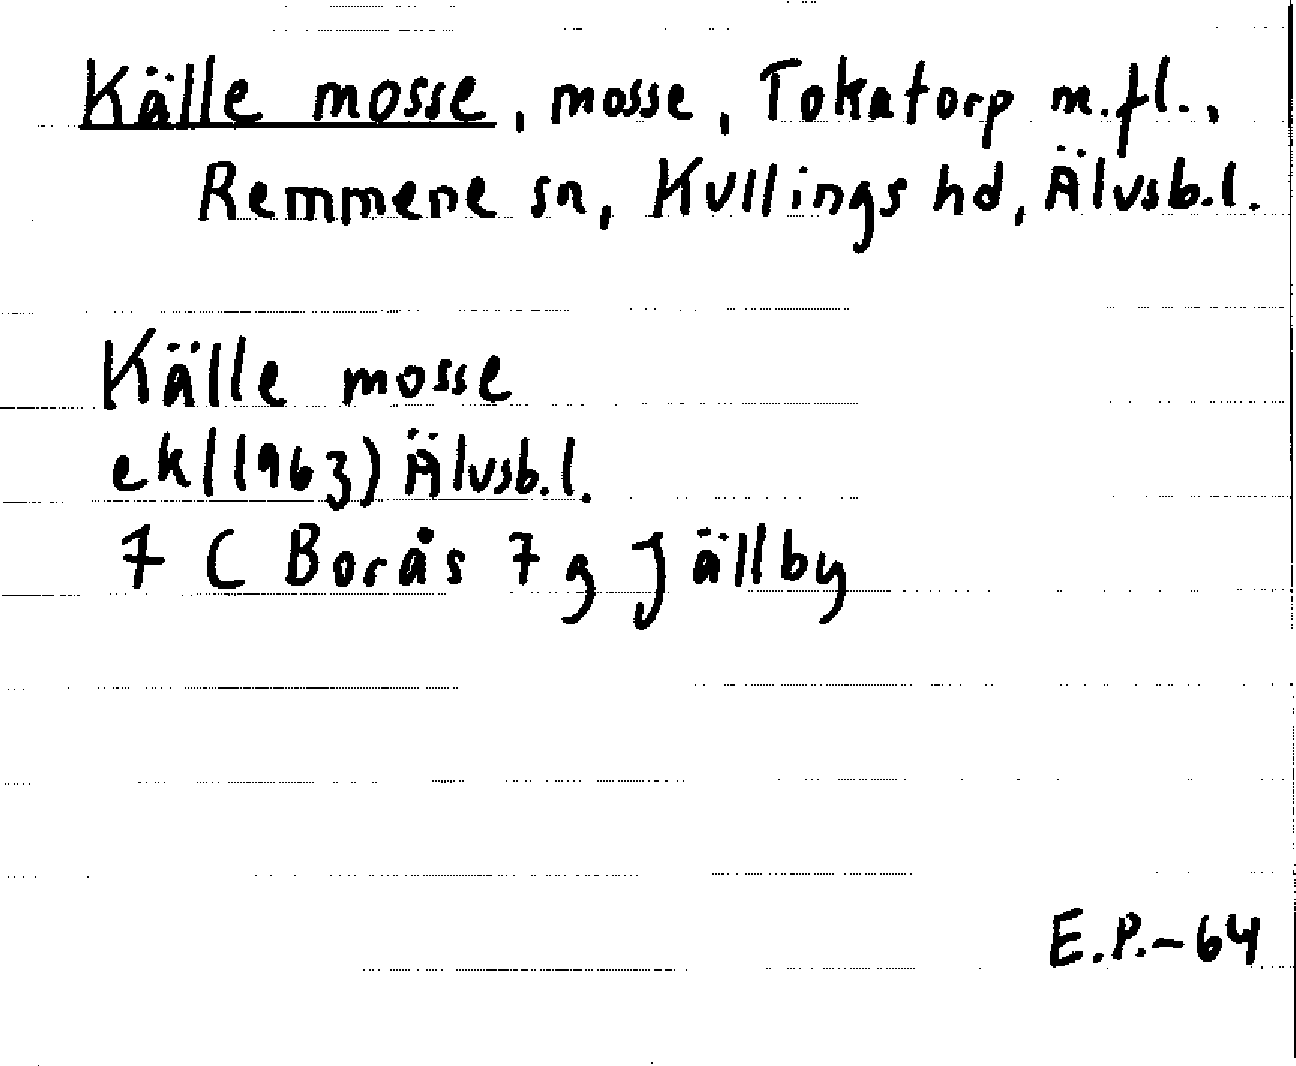 Källe mosse, mosse, Tokatorp m.fl.,
Remmene sn, Kullings hd, Älvsb.l.
Källe mosse
ek (1963) Älvsb.l.
7 C Borås 7 g Jällby
E.P.-64